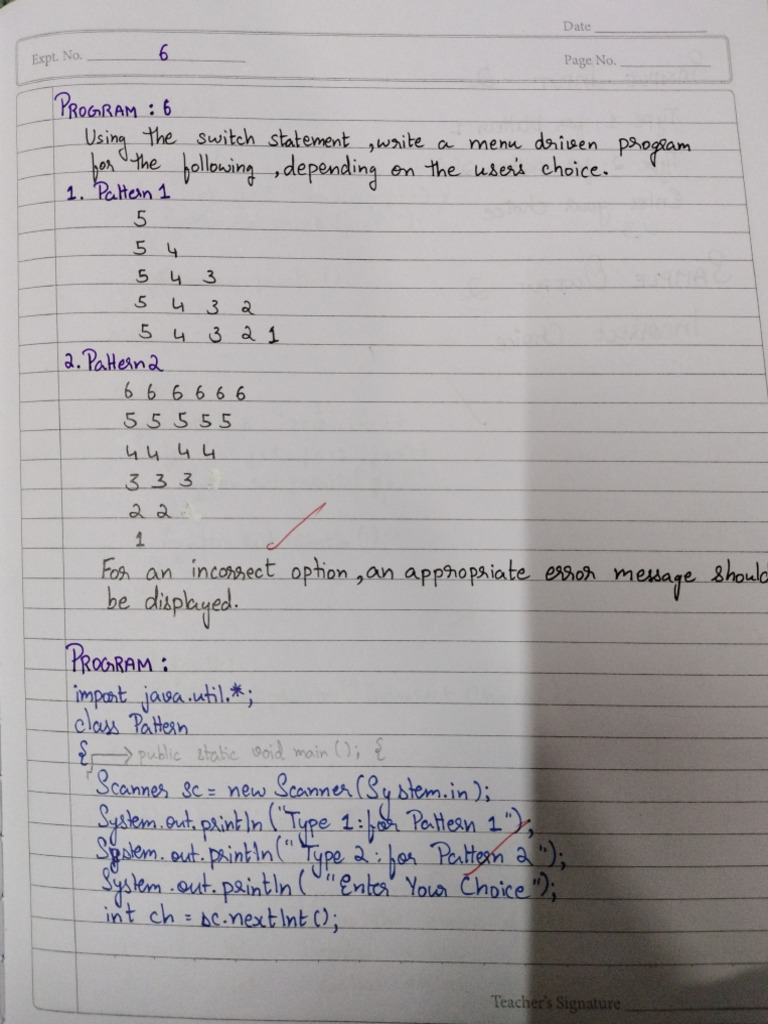 Date
Expt. No. 6
Page No.
PROGRAM : 6
Using the switch statement , write a menu driven program
for the following , depending on the user's choice.
1. Pattern 1
5
5 4
5 4 3
5 4 3 2
5 4 3 2 1
2. Pattern 2
6 6 6 6 6 6
5 5 5 5 5
4 4 4 4
3 3 3
2 2
1
For an incorrect option , an appropriate error message should
be displayed.
PROGRAM :
import java.util.*;
class Pattern
{ public static void main(); {
Scanner sc = new Scanner(System.in);
System.out.println("Type 1 : for Pattern 1");
System.out.println("Type 2 : for Pattern 2");
System.out.println( "Enter Your Choice");
int ch = sc.nextInt();
Teacher's Signature